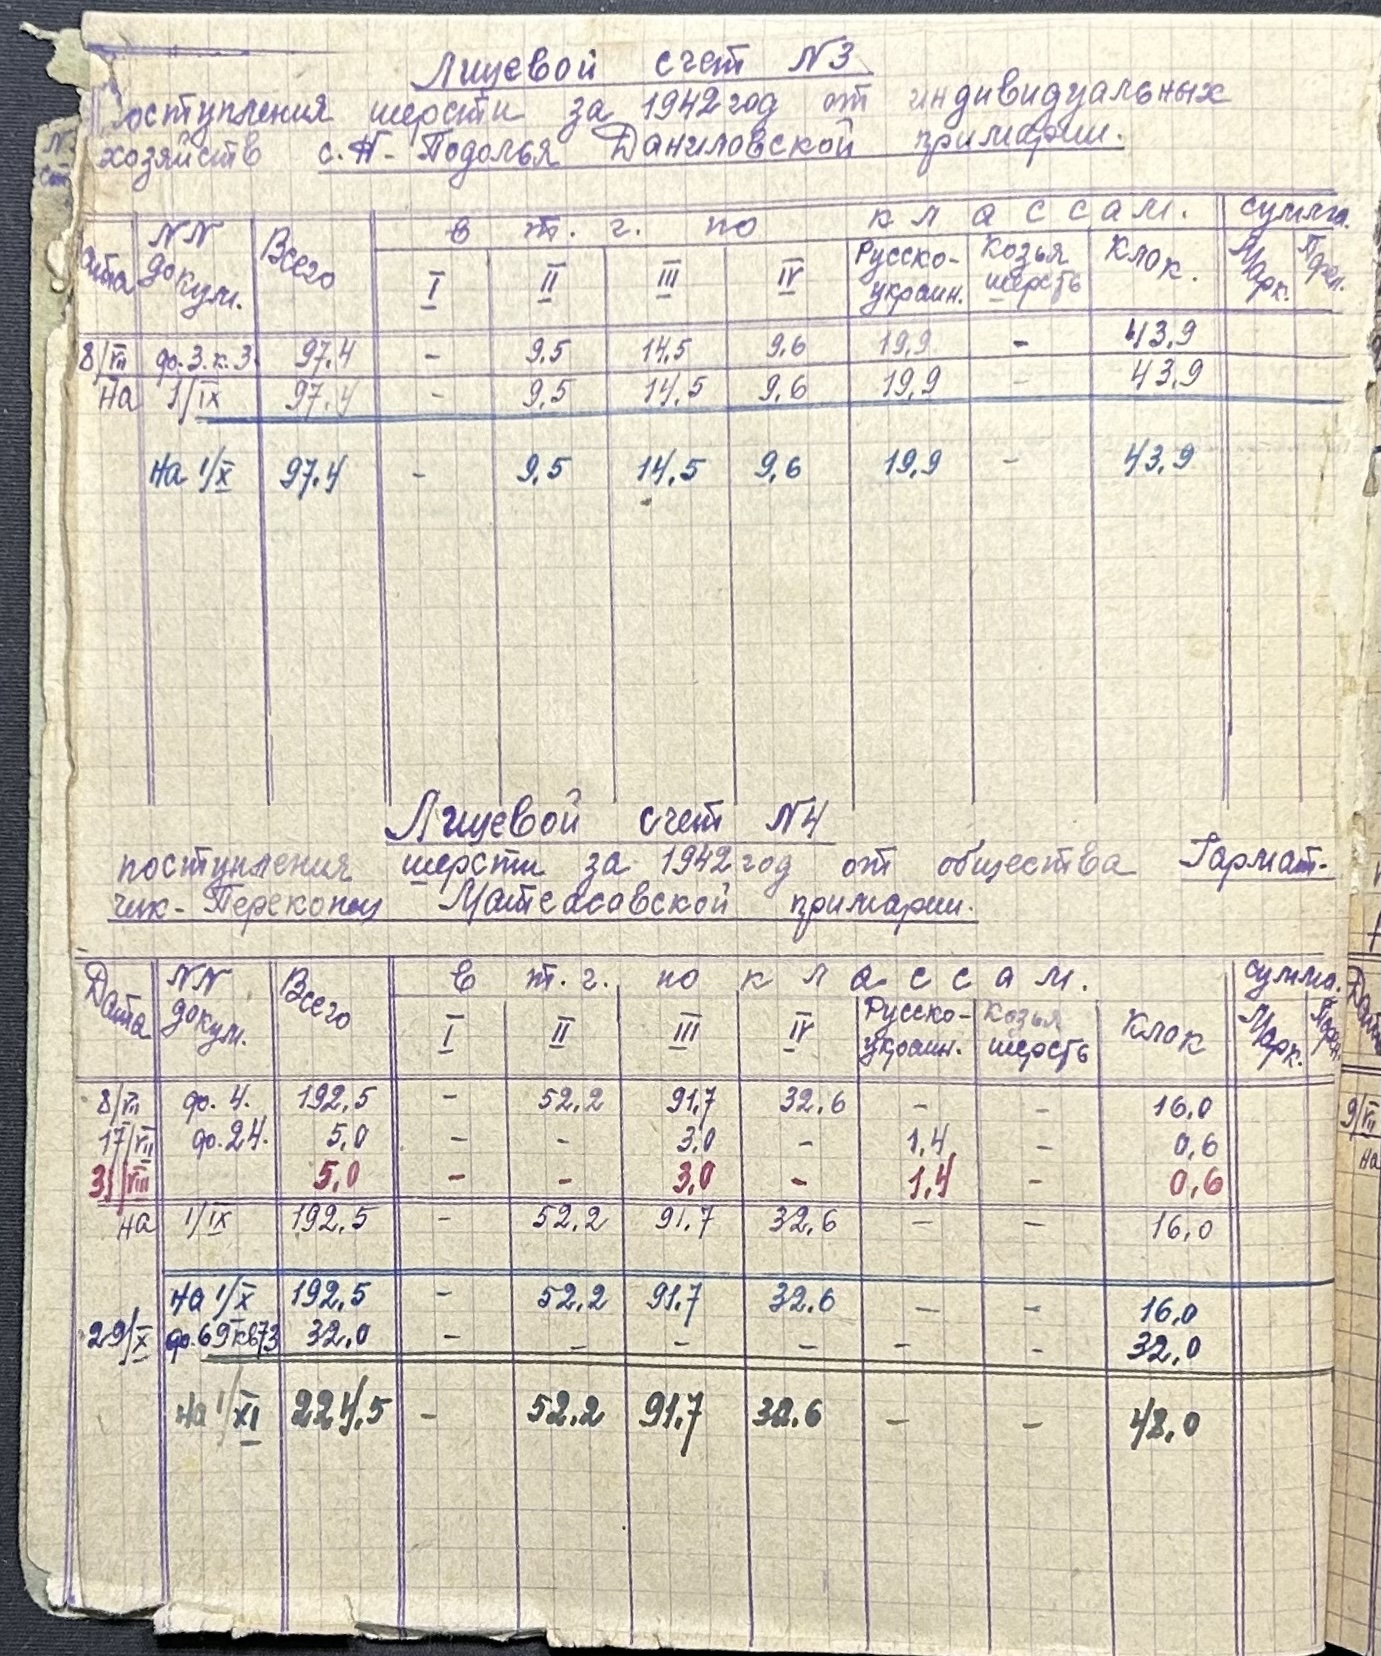 Лицевой счет №3
Поступления шерсти за 1942 год от индивидуальных
хозяйств с. Н-Подолья Даниловской примарии.
Дата NN докум. Всего в т. ч. по классам. сумма.
I II III IV Русско-украин. Козья шерсть Клок. Марк.
8/VII ф.3.к.3 97.4 - 9,5 14,5 9,6 19,9 - 43,9
На 1/IX 97.4 - 9,5 14,5 9,6 19,9 - 43,9
На 1/X 97.4 - 9,5 14,5 9,6 19,9 - 43,9
Лицевой счет №4
поступления шерсти за 1942 год от общества Гармат-
чик-Перекопец Матсасавской примарии.
Дата NN докум. Всего в т. ч. по классам. сумма.
I II III IV Русско-украин. Козья шерсть Клок Марк.
8/VII ф. 4. 192,5 - 52,2 91,7 32,6 - - 16,0
17/VII ф. 24. 5,0 - - 3,0 - 1,4 - 0,6
31/VIII 5,0 - - 3,0 - 1,4 - 0,6
На 1/IX 192,5 - 52,2 91,7 32,6 - - 16,0
На 1/X 192,5 - 52,2 91,7 32.6 - - 16,0
29/X ф.69 кв73 32,0 - - - - - - 32,0
На 1/XI 224,5 - 52.2 91,7 32.6 - - 48,0
Дата
9/VII
На